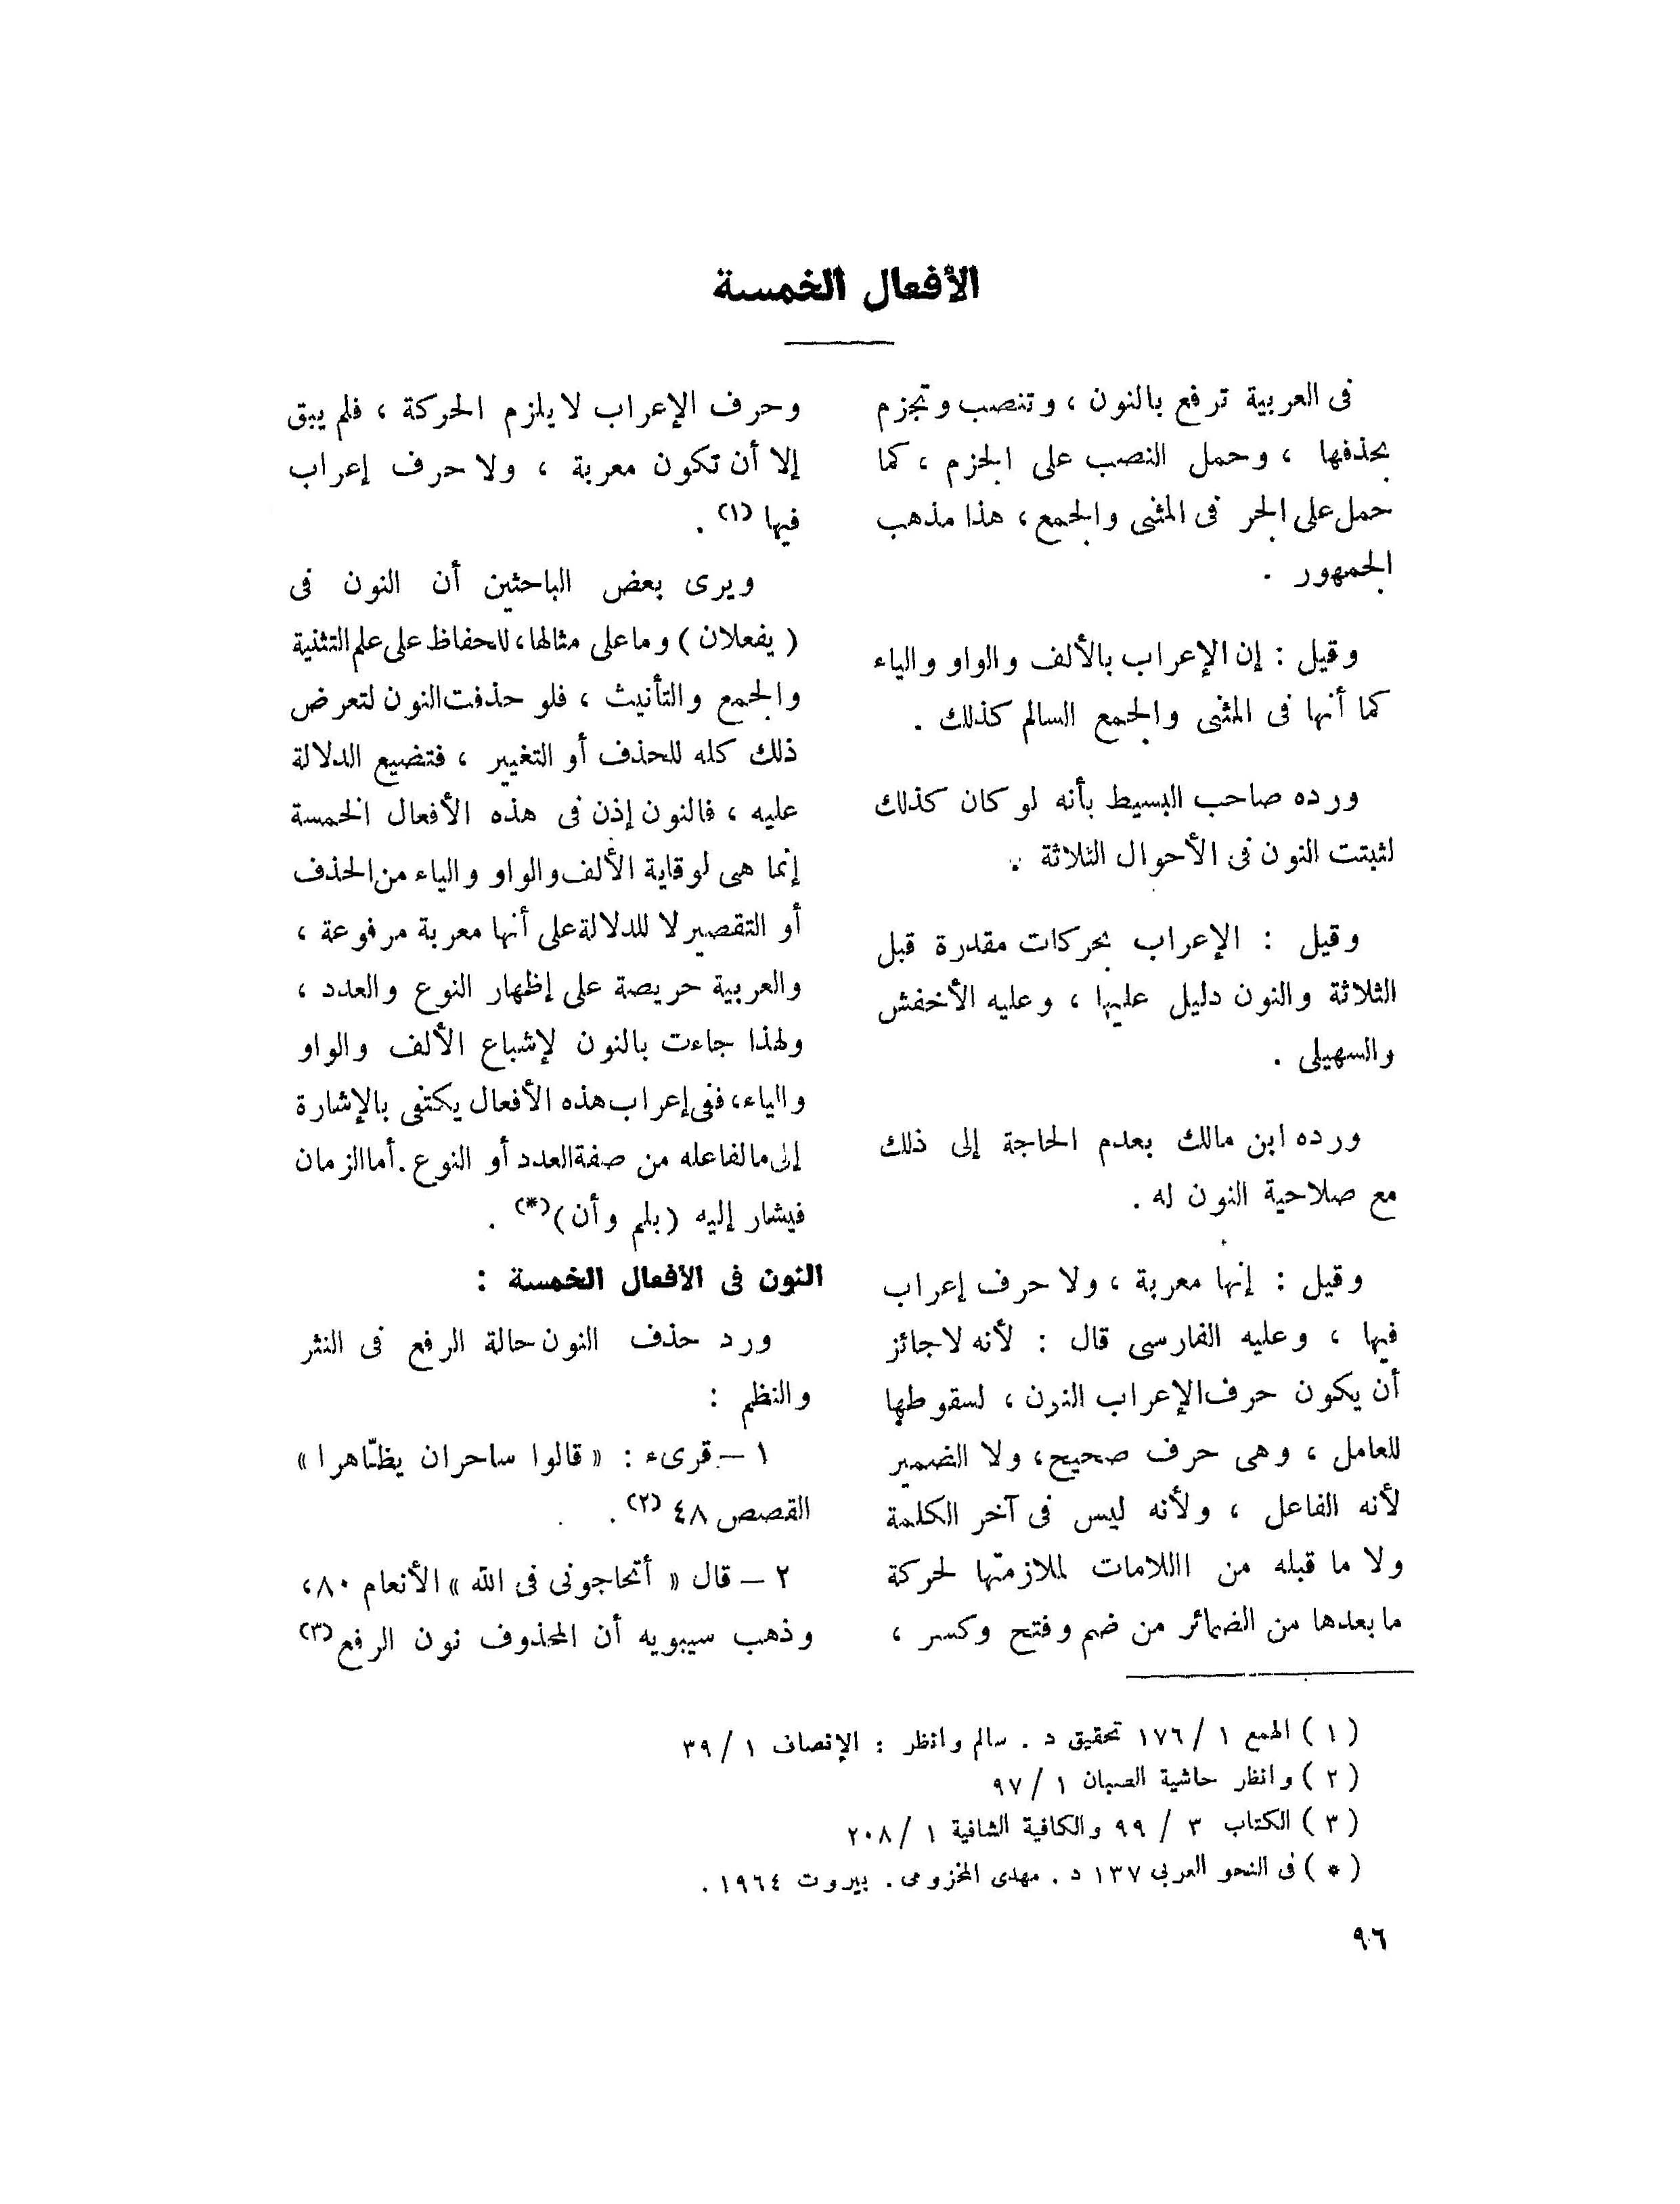 الأفعال الخمسة
فى العربية ترفع بالنون ، وتنصب وتجزم
بحذفها ، وحمل النصب على الجزم ، كما
حمل على الجر فى المثنى والجمع ، هذا مذهب
الجمهور .
وقيل : إن الإعراب بالألف والواو والياء
كما أنها فى المثنى والجمع السالم كذلك .
ورده صاحب البسيط بأنه لو كان كذلك
لثبتت النون فى الأحوال الثلاثة .
وقيل : الإعراب بحركات مقدرة قبل
الثلاثة والنون دليل عليها ، وعليه الأخفش
والسهيلى .
ورده ابن مالك بعدم الحاجة إلى ذلك
مع صلاحية النون له .
وقيل : إنها معربة ، ولا حرف إعراب
فيها ، وعليه الفارسى قال : لأنه لا جائز
أن يكون حرف الإعراب النون ، لسقوطها
للعامل ، وهى حرف صحيح ، ولا الضمير
لأنه الفاعل ، ولأنه ليس فى آخر الكلمة
ولا ما قبله من االلامات لملازمتها لحركة
ما بعدها من الضمائر من ضم وفتح وكسر ،
وحرف الإعراب لا يلزم الحركة ، فلم يبق
إلا أن تكون معربة ، ولا حرف إعراب
فيها (١) .
ويرى بعض الباحثين أن النون فى
( يفعلان ) وما على مثالها ، للحفاظ على علم التثنية
والجمع والتأنيث ، فلو حذفت النون لتعرض
ذلك كله للحذف أو التغيير ، فتضيع الدلالة
عليه ، فالنون إذن فى هذه الأفعال الخمسة
إنما هى لوقاية الألف والواو والياء من الحذف
أو التقصير لا للدلالة على أنها معربة مرفوعة ،
والعربية حريصة على إظهار النوع والعدد ،
ولهذا جاءت بالنون لإشباع الألف والواو
والياء ، ففى إعراب هذه الأفعال يكتفى بالإشارة
إلى ما لفاعله من صفة العدد أو النوع . أما الزمان
فيشار إليه (بلم وأن)(*) .
النون فى الأفعال الخمسة :
ورد حذف النون حالة الرفع فى النثر
والنظم :
١ – قرىء : « قالوا ساحران يظّاهرا »
القصص ٤٨ (٢) .
٢ – قال « أتحاجونى فى الله » الأنعام ٨٠ ،
وذهب سيبويه أن المحذوف نون الرفع (٣)
( ١ ) الهمع ١ / ١٧٦ تحقيق د . سالم وانظر : الإنصاف ١ / ٣٩
( ٢ ) وانظر حاشية الصبان ١ / ٩٧
( ٣ ) الكتاب ٣ / ٩٩ والكافية الشافية ١ / ٢٠٨
( * ) فى النحو العربى ١٣٧ د . مهدى المخزومى . بيروت ١٩٦٤ .
٩٦